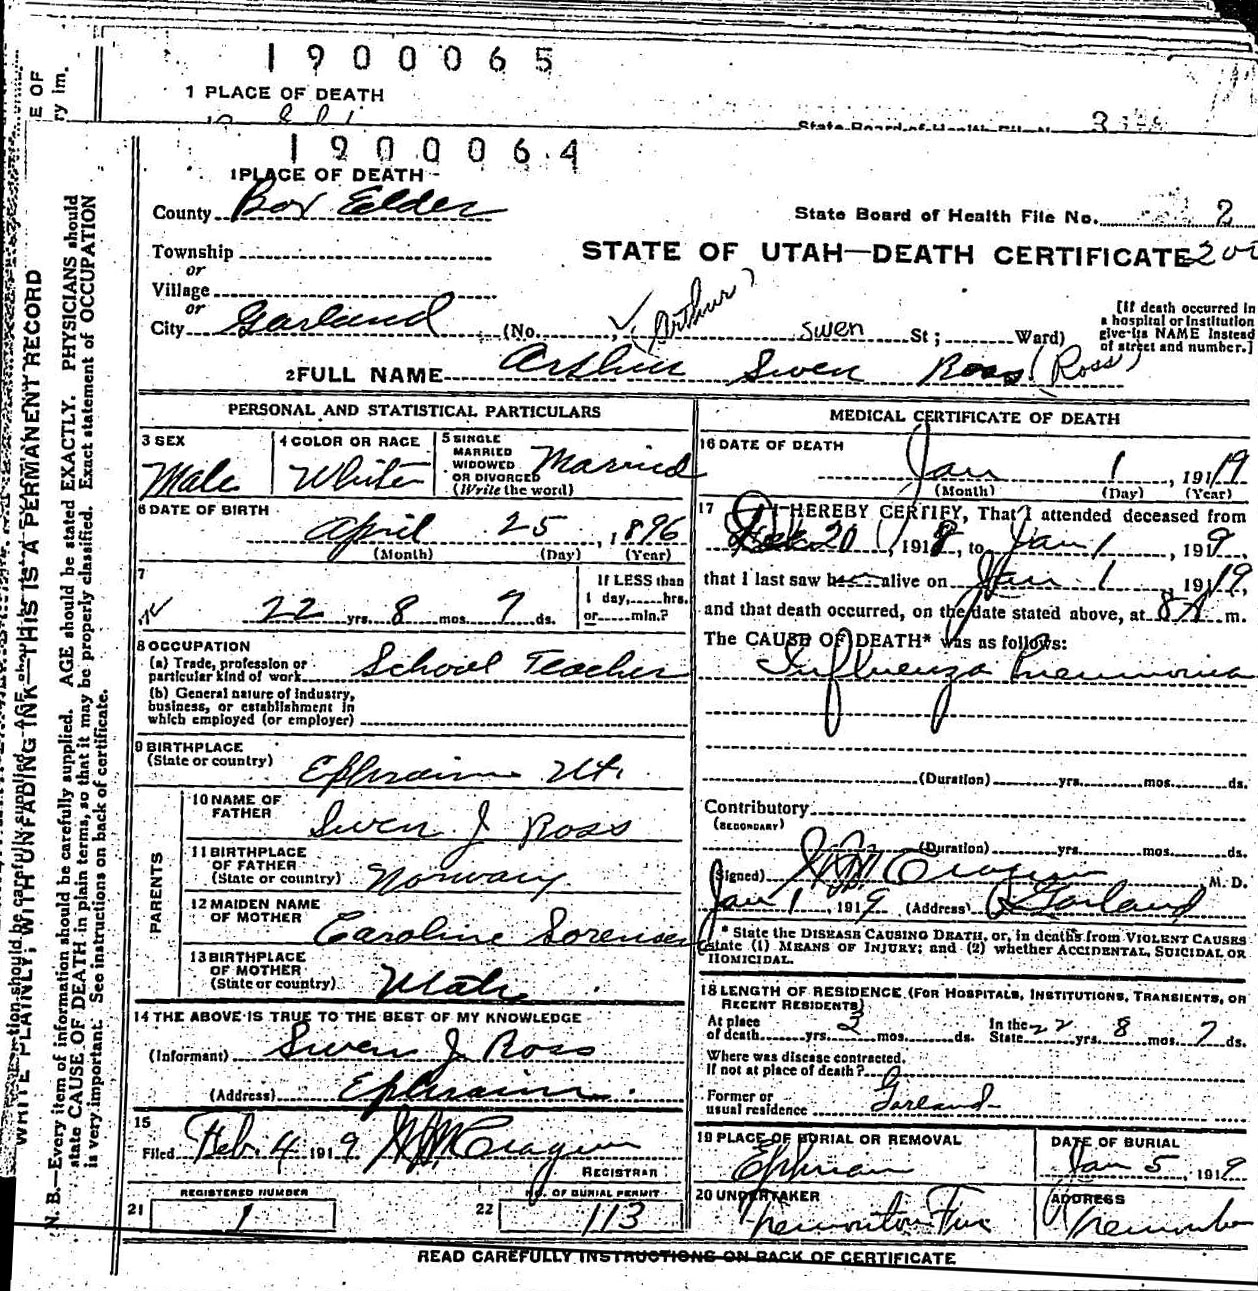 1900065
1 PLACE OF DEATH
State Board of Health File N
1900064
1 PLACE OF DEATH
County Box Elder
State Board of Health File No. 2
Township
STATE OF UTAH—DEATH CERTIFICATE 200
or
Village
or
City Garland (No. (Arthur) Swen St; Ward)
[If death occurred in a hospital or institution give its NAME instead of street and number.]
2 FULL NAME Arthur Swen Ross (Ross)
PERSONAL AND STATISTICAL PARTICULARS
3 SEX Male
4 COLOR OR RACE White
5 SINGLE MARRIED WIDOWED OR DIVORCED (Write the word) Married
6 DATE OF BIRTH April 25, 1896
(Month) (Day) (Year)
7 22 yrs. 8 mos. 7 ds.
If LESS than 1 day, hrs. or min.?
8 OCCUPATION
(a) Trade, profession or particular kind of work School Teacher
(b) General nature of industry, business, or establishment in which employed (or employer)
9 BIRTHPLACE (State or country) Ephraim Ut.
PARENTS
10 NAME OF FATHER Swen J Ross
11 BIRTHPLACE OF FATHER (State or country) Norway
12 MAIDEN NAME OF MOTHER Caroline Sorensen
13 BIRTHPLACE OF MOTHER (State or country) Utah
14 THE ABOVE IS TRUE TO THE BEST OF MY KNOWLEDGE
(Informant) Swen J. Ross
(Address) Ephraim.
15
Filed Feb. 4 1919
REGISTRAR
21 REGISTERED NUMBER 1
22 NO. OF BURIAL PERMIT 113
MEDICAL CERTIFICATE OF DEATH
16 DATE OF DEATH
Jan 1, 1919
(Month) (Day) (Year)
17 I HEREBY CERTIFY, That I attended deceased from
20, 1918, to Jan 1, 1919,
that I last saw alive on Jan 1, 1919,
and that death occurred, on the date stated above, at 8 A m.
The CAUSE OF DEATH* was as follows:
Influenza Pneumonia
(Duration) yrs. mos. ds.
Contributory
(SECONDARY)
(Duration) yrs. mos. ds.
(Signed) M.D.
Jan 1, 1919 (Address) Garland
* State the DISEASE CAUSING DEATH, or, in deaths from VIOLENT CAUSES
state (1) MEANS OF INJURY; and (2) whether ACCIDENTAL, SUICIDAL OR
HOMICIDAL.
18 LENGTH OF RESIDENCE (FOR HOSPITALS, INSTITUTIONS, TRANSIENTS, OR
RECENT RESIDENTS)
At place of death yrs. 2 mos. ds. In the State 22 yrs. 8 mos. 7 ds.
Where was disease contracted.
If not at place of death?
Former or usual residence Garland
19 PLACE OF BURIAL OR REMOVAL Ephraim
DATE OF BURIAL Jan 5, 1919
20 UNDERTAKER Tremonton
ADDRESS Tremonton
READ CAREFULLY INSTRUCTIONS ON BACK OF CERTIFICATE
WRITE PLAINLY, WITH UNFADING INK—THIS IS A PERMANENT RECORD
N. B.—Every item of information should be carefully supplied. AGE should be stated EXACTLY. PHYSICIANS should
state CAUSE OF DEATH in plain terms, so that it may be properly classified. Exact statement of OCCUPATION
is very important. See instructions on back of certificate.